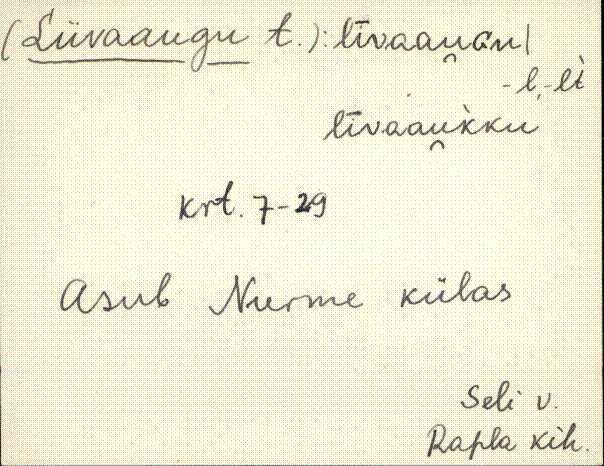 (Liivaaugu t.): līvaau̯Gu|
-l, -lt̀
līvaau̯k̀ku
krt. 7-29
Asub Nurme külas
Seli v.
Rapla kih.